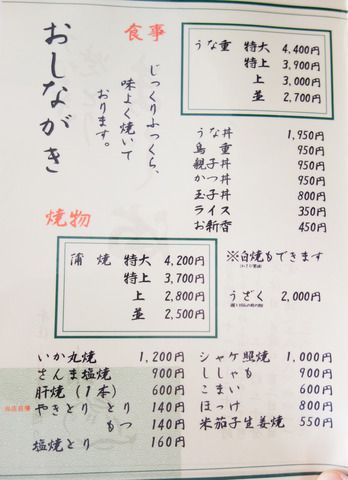 おしながき
じっくりふっくら、
味よく焼いて
おります。
食事
うな重 特大 4,400円
特上 3,900円
上 3,000円
並 2,700円
うな丼 1,950円
鳥重 950円
親子丼 950円
かつ丼 950円
玉子丼 800円
ライス 350円
お新香 450円
焼物
蒲焼 特大 4,200円
特上 3,700円
上 2,800円
並 2,500円
※白焼もできます
うざく 2,000円
いか丸焼 1,200円
さんま塩焼 900円
肝焼(1本) 600円
当店自慢 やきとり とり 140円
もつ 140円
塩焼とり 160円
シャケ照焼 1,000円
ししゃも 900円
こまい 600円
ほっけ 800円
米茄子生姜焼 550円